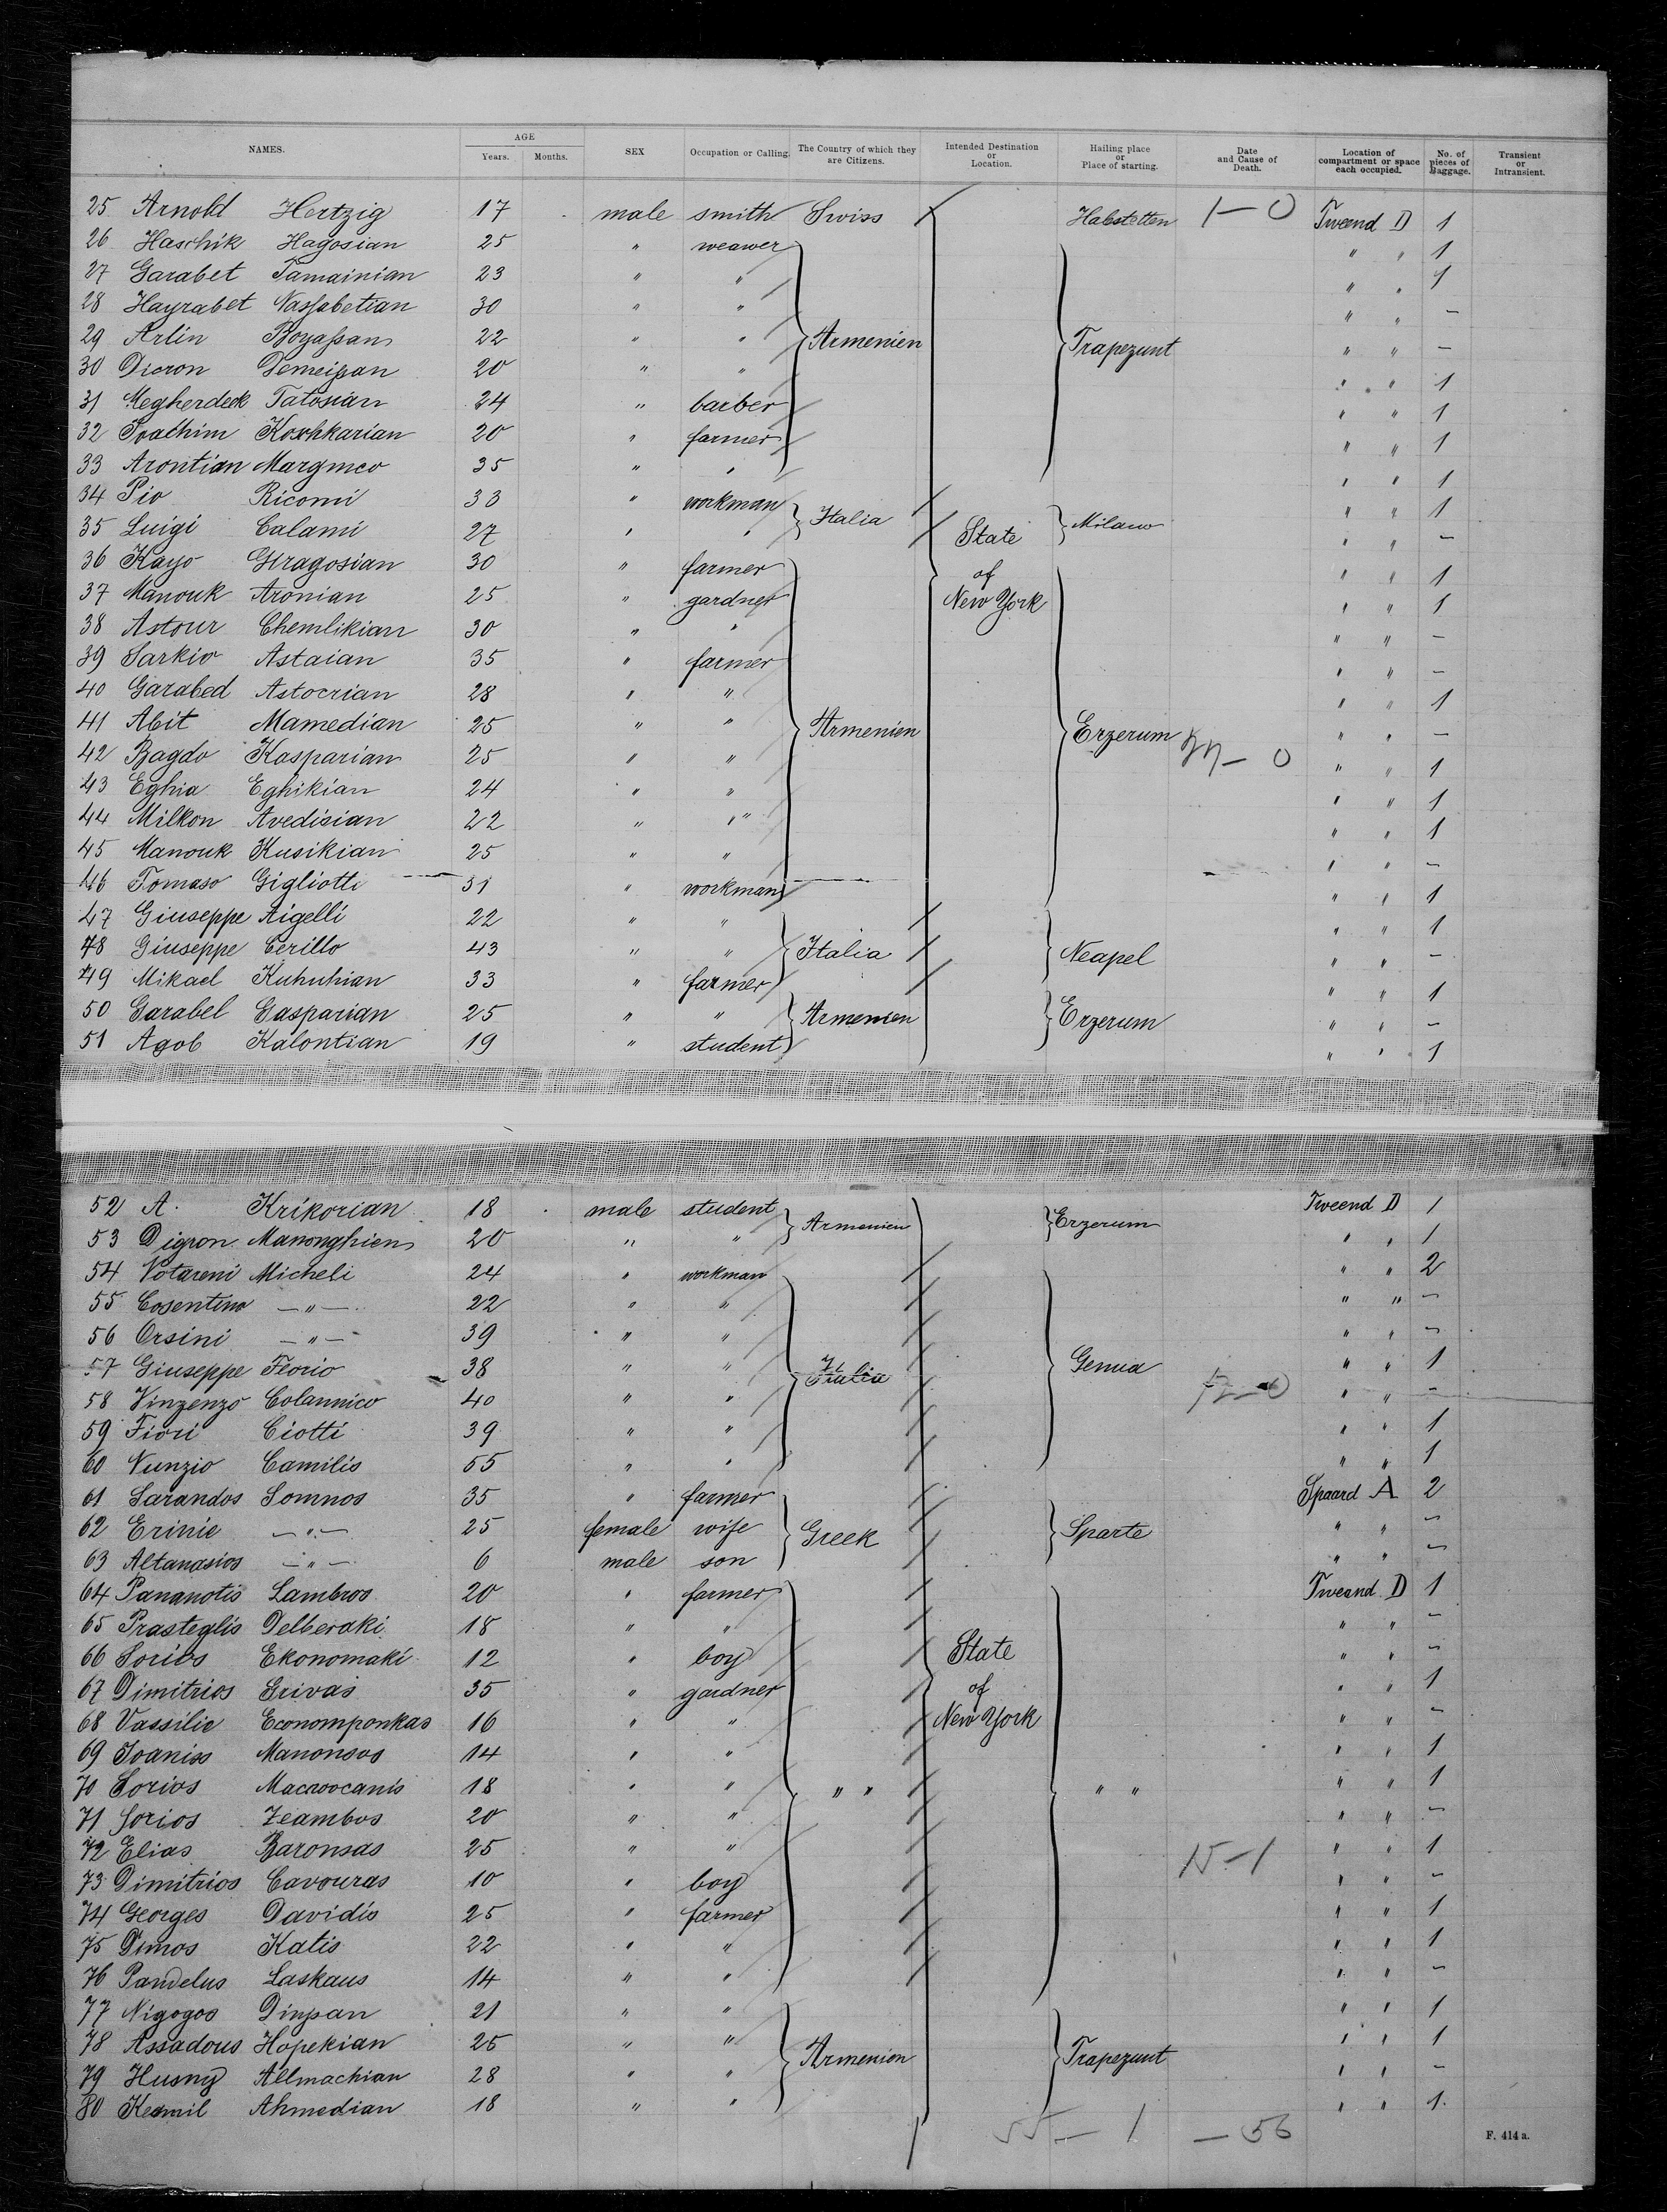 NAMES. AGE Years. Months. SEX Occupation or Calling. The Country of which they are Citizens. Intended Destination or Location. Hailing place or Place of starting. Date and Cause of Death. Location of compartment or space each occupied. No. of pieces of Baggage. Transient or Intransient.
25 Arnold Hertzig 17 male smith Swiss Habstetten 1 — 0 Tweend D 1
26 Haschik Hagosian 25 " weawer " " 1
27 Garabet Tamainian 23 " " " " 1
28 Hayrabet Nassabetian 30 " " " " —
29 Arlin Boyassan 22 " " Armenien Trapezunt " " —
30 Dicron Demeijian 20 " " " " 1
31 Megherdeck Tatosian 24 " barber " " 1
32 Joachim Koschkarian 20 " farmer " " 1
33 Arontian Margmeo 35 " " " " 1
34 Pio Ricomi 33 " workman " " 1
35 Luigi Calami 27 " " Italia State Milano " " —
36 Kayo Giragosian 30 " farmer of " " 1
37 Manouk Aronian 25 " gardner New York " " 1
38 Astour Chemlikian 30 " " " " —
39 Sarkio Astaian 35 " farmer " " —
40 Garabed Astocrian 28 " " " " 1
41 Abit Mamedian 25 " " Armenien Erzerum " " —
42 Bagdo Kasparian 25 " " — 0 " " 1
43 Eghia Eghikian 24 " " " " 1
44 Milkon Avedisian 22 " " " " 1
45 Manouk Kusikian 25 " " " " —
46 Tomaso Gigliotti 31 " workman " " 1
47 Giuseppe Aigelli 22 " " " " 1
48 Giuseppe Cerillo 43 " " Italia Neapel " " —
49 Mikael Kuhuhian 33 " farmer " " 1
50 Garabel Gasparian 25 " " Armenien Erzerum " " —
51 Agob Kalontian 19 " student " " 1
52 A. Krikorian 18 male student Armenien Erzerum Tweend D 1
53 Digron Manonghien 20 " " " " 1
54 Votareni Micheli 24 " workman " " 2
55 Cosentino — " — 22 " " " " —
56 Orsini — " — 39 " " " " —
57 Giuseppe Florio 38 " " Italia Genua " " 1
58 Vinzenzo Colannico 40 " " " " —
59 Fiori Ciotti 39 " " " " 1
60 Nunzio Camilis 55 " " " " 1
61 Sarandos Somnos 35 " farmer Spaard A 2
62 Erinie — " — 25 female wife Greek Sparte " " —
63 Altanasios — " — 6 male son " " —
64 Pananotis Lambros 20 " farmer Tweend D 1
65 Prasteglis Delberaki 18 " " " " —
66 Sorios Ekonomaki 12 " boy State " " —
67 Dimitrios Grivas 35 " gardner of " " 1
68 Vassilie Economponkas 16 " " New York " " —
69 Joaniss Manonsos 14 " " " " 1
70 Sorios Macroocanis 18 " " " " " " " " 1
71 Sorios Zeambos 20 " " " " —
72 Elias Baronsas 25 " " 15 — 1 " " 1
73 Dimitrios Cavouras 10 " boy " " —
74 Georges Davidis 25 " farmer " " 1
75 Dimos Katis 22 " " " " 1
76 Pandelus Laskaus 14 " " " " —
77 Nigogos Dinjian 21 " " " " 1
78 Assadous Hopekian 25 " " Armenien Trapezunt " " 1
79 Husny Allmachian 28 " " " " —
80 Kesmil Ahmedian 18 " " " " 1.
55 — 1 — 56
F. 414 a.